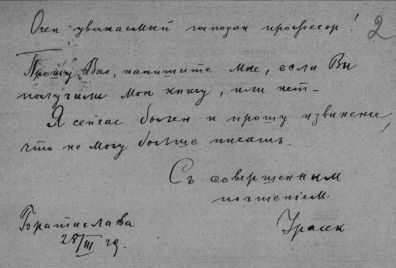 Очен уважаемый господин профессор! 2
Прошу Вас, напишите мне, если Вы
получили мою книгу, или нет.
Я сейчас болен и прошу извинени,
что не могу больше писать.
Съ совершенным
почтеніем
Братислава
28/III 29.